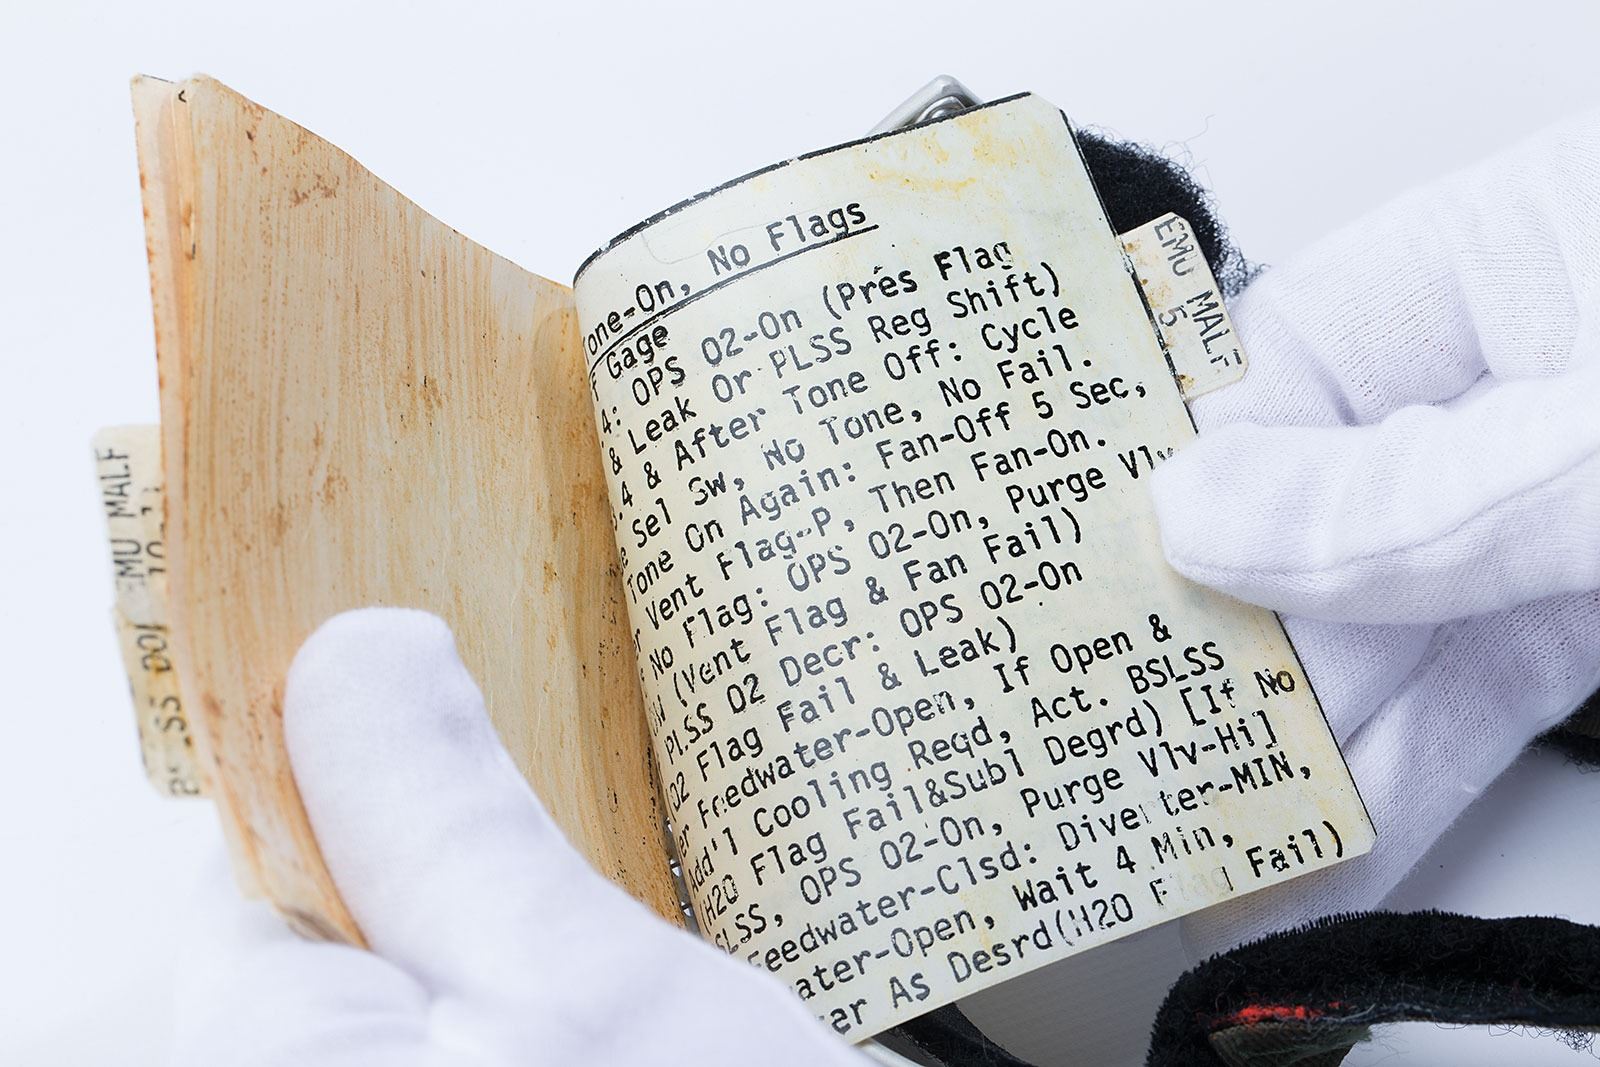 MU MALF
10
one-On, No Flags
F Gage
.4: OPS O2-On (Pres Flag
& Leak Or PLSS Reg Shift)
.4 & After Tone Off: Cycle
e Sel Sw, No Tone, No Fail.
Tone On Again: Fan-Off 5 Sec,
r Vent Flag-P, Then Fan-On.
No Flag: OPS O2-On, Purge Vlv
(Vent Flag & Fan Fail)
PLSS O2 Decr: OPS O2-On
O2 Flag Fail & Leak)
er Feedwater-Open, If Open &
Add'l Cooling Reqd, Act. BSLSS
(H2O Flag Fail&Subl Degrd) [If No
SLSS, OPS O2-On, Purge Vlv-Hi]
Feedwater-Clsd: Diverter-MIN,
ater-Open, Wait 4 Min,
er As Desrd(H2O Flag Fail)
EMU MALF
5